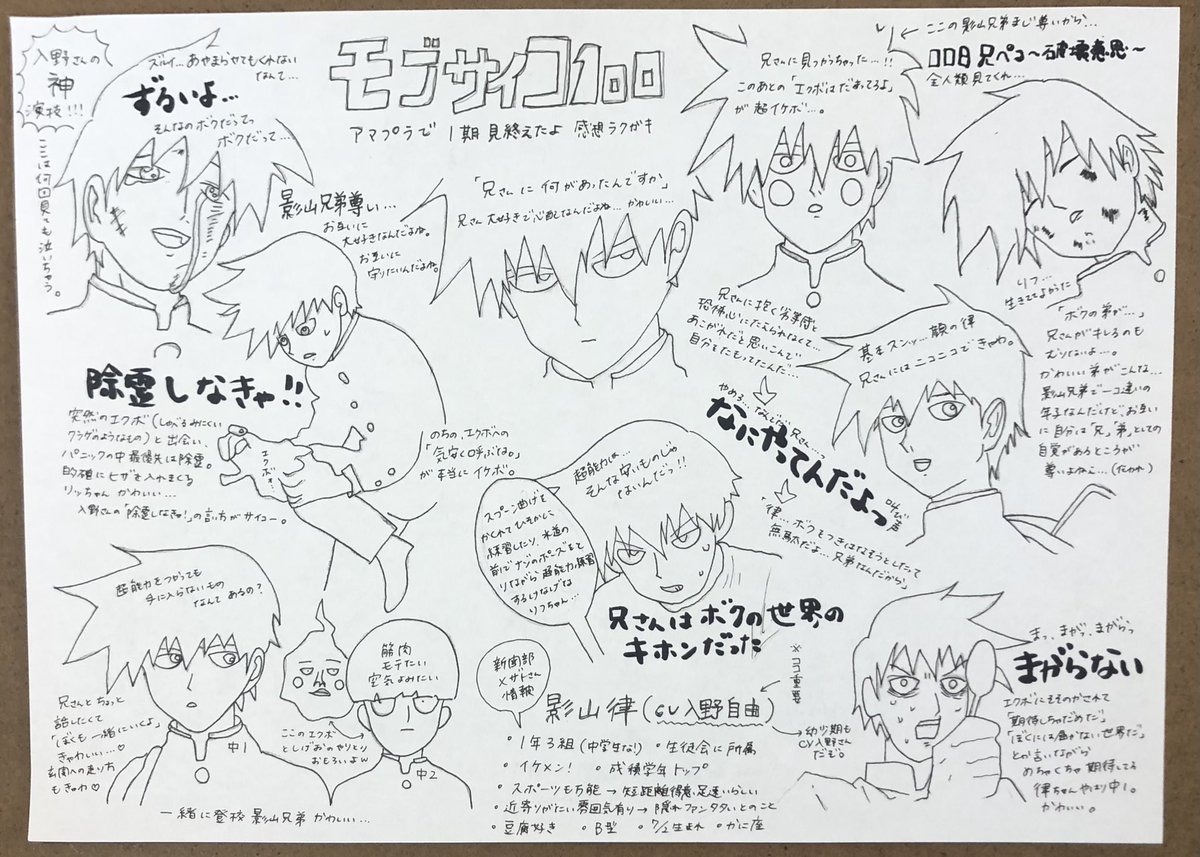 入野さんの
神
演技!!!
ズルイ...あやまらせてもくれない
なんて...
ずるいよ...
そんなのボクだってっ
ボクだって...
ここは何回見ても泣いちゃう。
モブサイコ100
アマプラで 1期 見終えたよ 感想ラクガキ
影山兄弟尊い...
お互いに
大好きなんだよね。
お互いに
守りたいんだよね。
「兄さんに何があったんですか」
兄さん大好きで心配なんだよね...かわいい...
兄さんに見つかっちゃった...!!
このあとの「エクボはだまってろよ」
が超イケボ...。
ここの影山兄弟まじ尊いから...
全人類見てくれ...
リツ...
生きててよかった
「ボクの弟が...」
兄さんがキレるのも
かわいい弟がこんな...
影山兄弟で一コ違いの
年子なんだけど、お互い
に自分は「兄」「弟」としての
自覚があるところが
尊いよねぇ...
兄さんに抱く劣等感と
恐怖心にたえられなくて...
あこがれだと思いこんで
自分をたもってたんだ...
基本スンッ...顔の律
兄さんにはニコニコできゃわ。
除霊しなきゃ!!
突然のエクボ(しゃべるみにくい
クラゲのようなもの)と出会い、
パニックの中最優先は除霊。
的確にヒザを入れまくる
リッちゃん かわいい...
入野さんの「除霊しなきゃ!」の言い方がサイコー。
エクボォ...
のちの、エクボへの
「気安く呼ぶな。」
が本当にイケボ。
やめろ...なんだ...兄さん...
なにやってんだよっ
叫び声
「律...ボクをつきはなそうとしたって
無駄だよ...兄弟なんだから」
超能力は...
そんな安いものじゃ
ないんだっ!!
スプーン曲げを
かくれてひそかに
練習したり、水道の
前でナゾのポーズをと
りながら超能力の練習
するけなげな
りつちゃん...
兄さんはボクの世界の
キホンだった
※ココ重要
超能力をつかっても
手に入らないもの
なんてあるの?
兄さんとちょっと
話したくて
「ぼくも一緒にいくよ」
きゃわいい...♡
玄関への走り方
もきゃわ♡
中1
筋肉
モテたい
空気よみたい
ここのエクボ
としげおのやりとり
おもろいよw
中2
一緒に登校 影山兄弟 かわいい...
新聞部
メザトさん
情報
影山律(CV入野自由)
幼少期も
CV入野さん
だぞ。
・1年3組(中学生なり) ・生徒会に所属
・イケメン! ・成績学年トップ
・スポーツも万能→短距離得意、足速いらしい
・近寄りがたい雰囲気有り→隠れファンタタいとのこと
・豆腐好き ・B型 ・7/2生まれ ・かに座
まっ、まがら、まがらっ
まがらない
エクボにそそのかされて
「期待しちゃだめだ」
「ぼくにしか届かない世界だ」
とか言いながら
めちゃくちゃ期待してる
律ちゃんやはり中1。
かわいい。